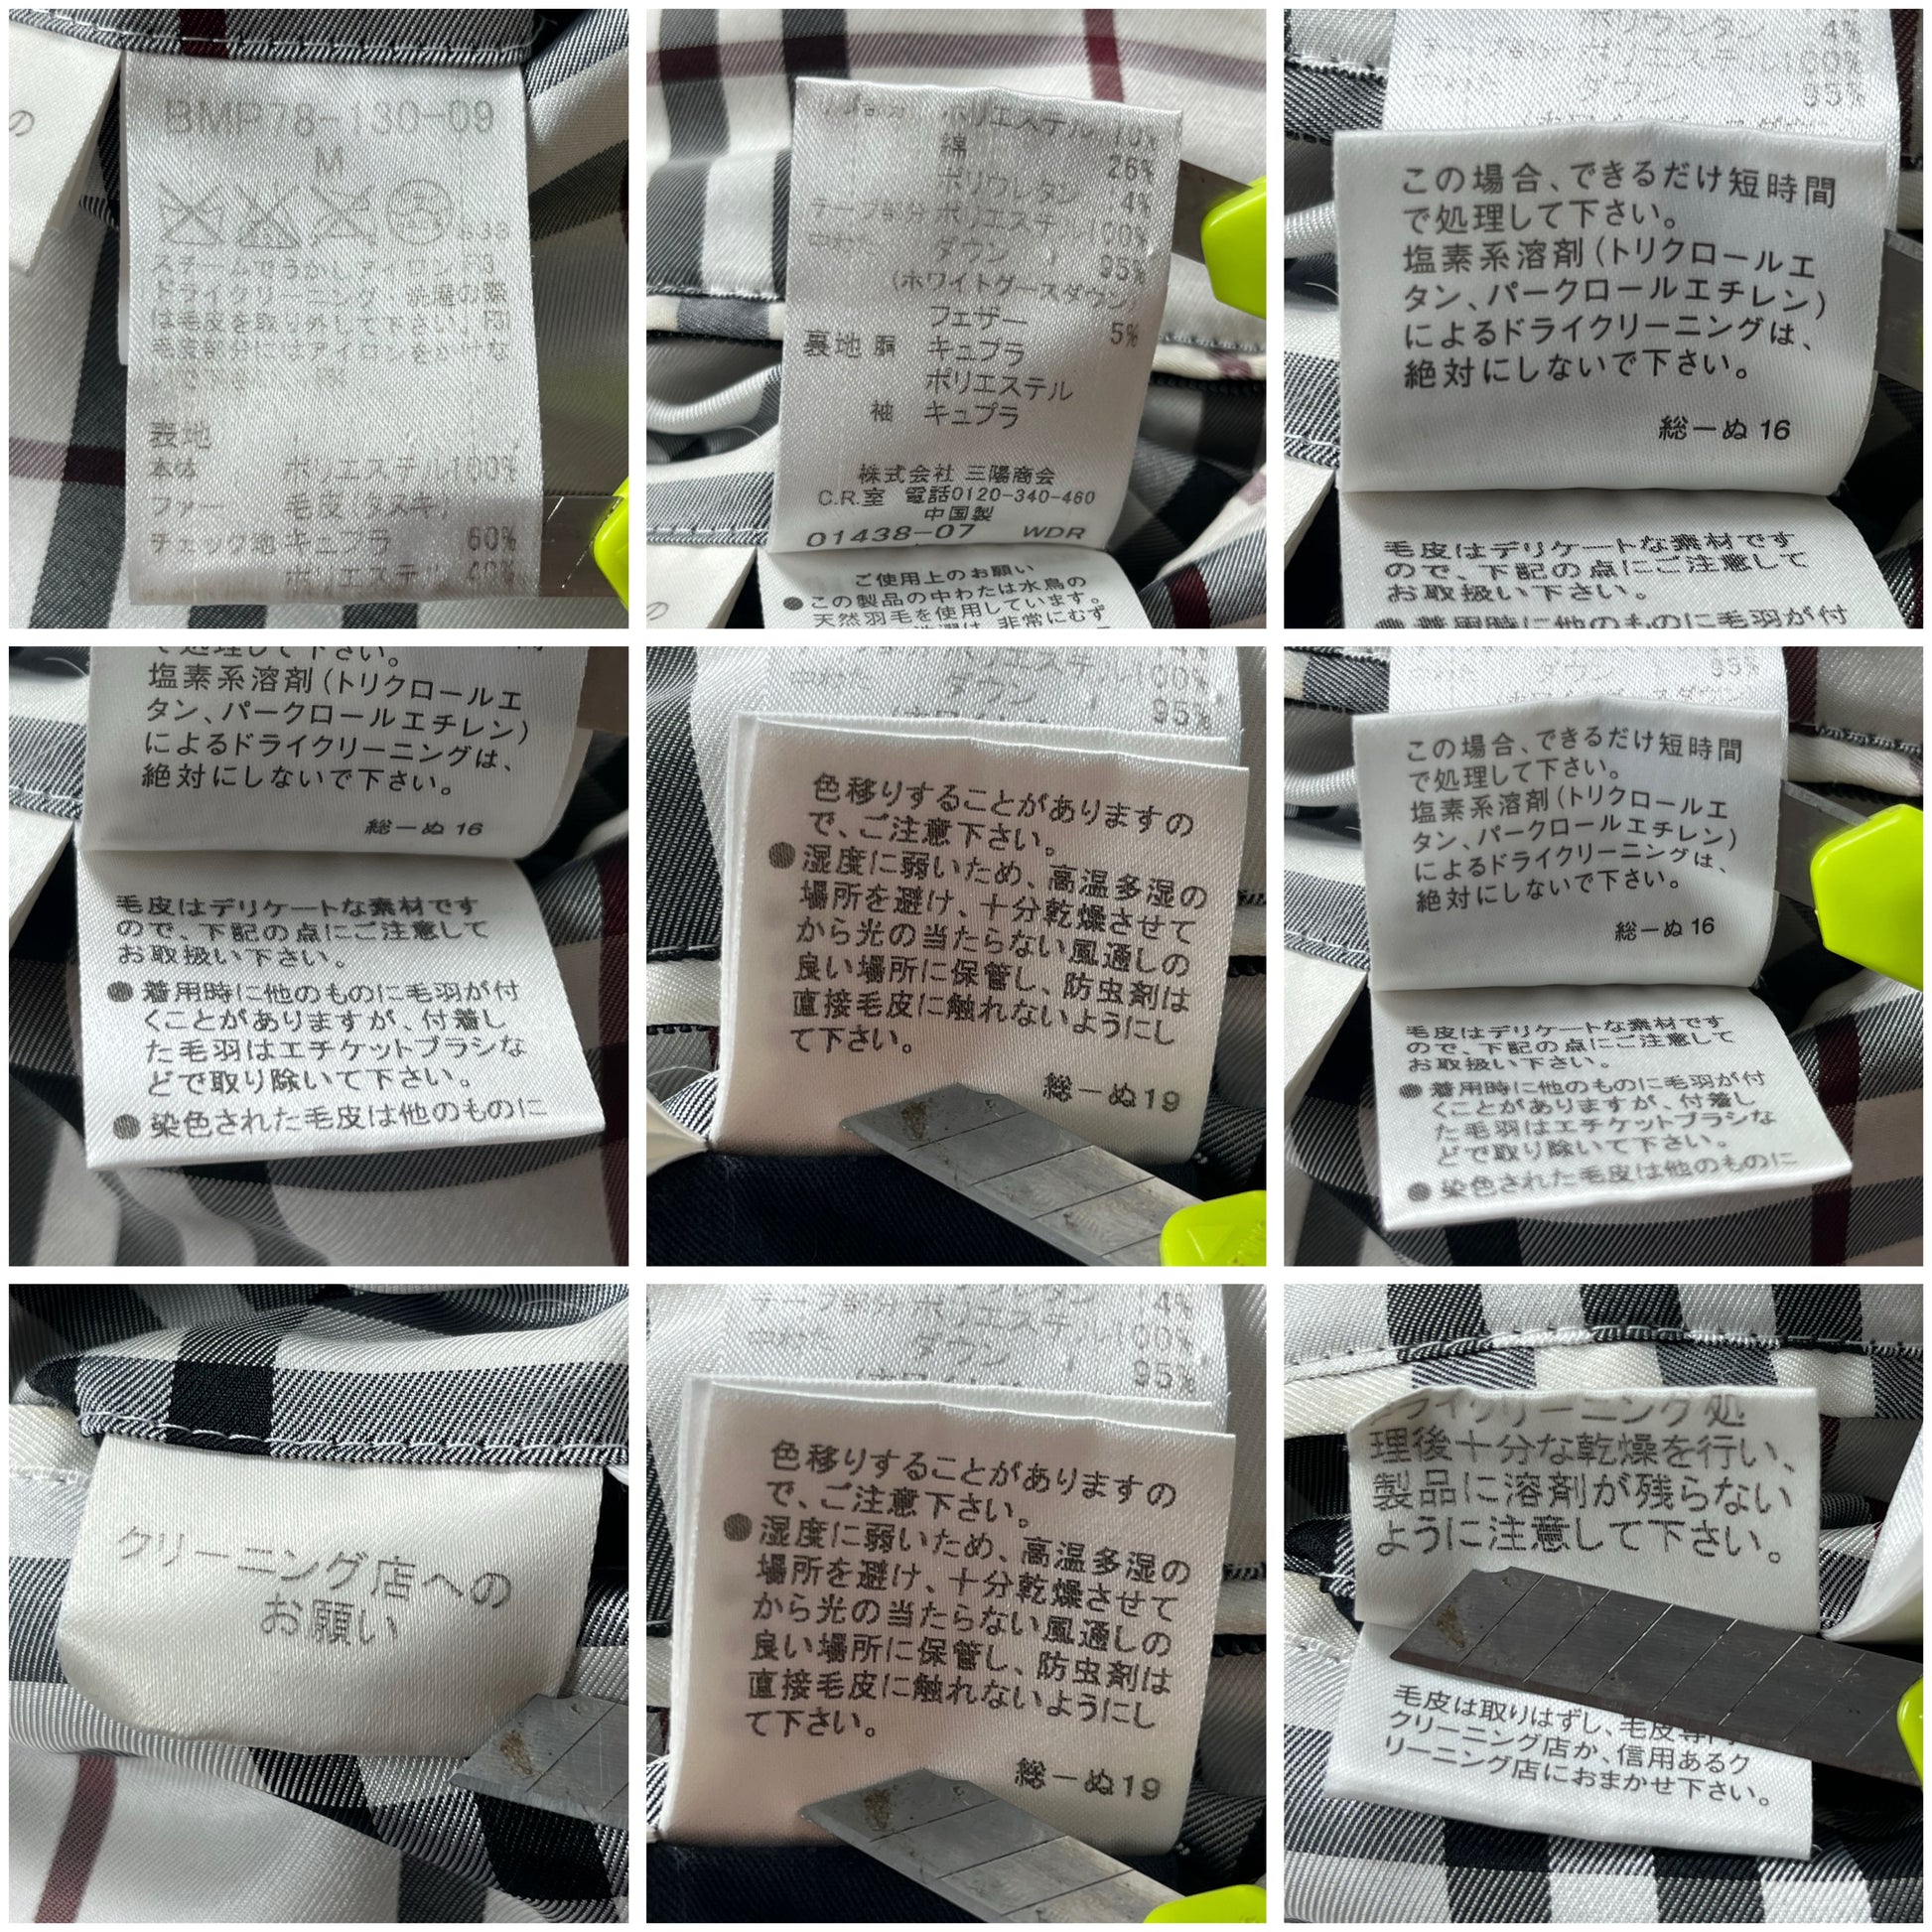 の
BMP78-130-09
M
スチームでうかしアイロン F3
ドライクリーニング・洗濯の際
は毛皮を取り外して下さい。F3
毛皮部分にはアイロンをかけな
いで下さい
表地
本体 ポリエステル 100%
ファー 毛皮(タヌキ)
チェック地 キュプラ 60%
ポリエステル 40%
ポリエステル 10%
綿 26%
ポリウレタン 4%
テープ部分 ポリエステ 100%
中わた ダウン 95%
(ホワイトグースダウン
フェザー 5%
裏地 胴 キュプラ
ポリエステル
袖 キュプラ
株式会社 三陽商会
C.R.室 電話0120-340-460
中国製
01438-07 WDR
ご使用上のお願い
●この製品の中わたは水鳥の
天然羽毛を使用しています。
は、非常にむず
ポリウレタン 4%
テープ部分 ポリエステ 100%
ダウン 95%
この場合、できるだけ短時間
で処理して下さい。
塩素系溶剤(トリクロールエ
タン、パークロールエチレン)
によるドライクリーニングは、
絶対にしないで下さい。
総ーぬ 16
毛皮はデリケートな素材です
ので、下記の点にご注意して
お取扱い下さい。
●着用時に他のものに毛羽が付
で処理して下さい。
塩素系溶剤(トリクロールエ
タン、パークロールエチレン)
によるドライクリーニングは、
絶対にしないで下さい。
総ーぬ 16
毛皮はデリケートな素材です
ので、下記の点にご注意して
お取扱い下さい。
●着用時に他のものに毛羽が付
くことがありますが、付着し
た毛羽はエチケットブラシな
どで取り除いて下さい。
●染色された毛皮は他のものに
中わた ダウン 95%
色移りすることがありますの
で、ご注意下さい。
●湿度に弱いため、高温多湿の
場所を避け、十分乾燥させて
から光の当たらない風通しの
良い場所に保管し、防虫剤は
直接毛皮に触れないようにし
て下さい。
総ーぬ19
ダウン 95%
この場合、できるだけ短時間
で処理して下さい。
塩素系溶剤(トリクロールエ
タン、パークロールエチレン)
によるドライクリーニングは、
絶対にしないで下さい。
総ーぬ 16
毛皮はデリケートな素材です
ので、下記の点にご注意して
お取扱い下さい。
●着用時に他のものに毛羽が付
くことがありますが、付着し
た毛羽はエチケットブラシな
どで取り除いて下さい。
●染色された毛皮は他のものに
クリーニング店への
お願い
4%
テープ部分 ポリエステル 100%
中わた ダウン 95%
色移りすることがありますの
で、ご注意下さい。
●湿度に弱いため、高温多湿の
場所を避け、十分乾燥させて
から光の当たらない風通しの
良い場所に保管し、防虫剤は
直接毛皮に触れないようにし
て下さい。
総ーぬ19
ドライクリーニング処
理後十分な乾燥を行い、
製品に溶剤が残らない
ように注意して下さい。
毛皮は取りはずし、毛皮専門
クリーニング店か、信用あるク
リーニング店におまかせ下さい。